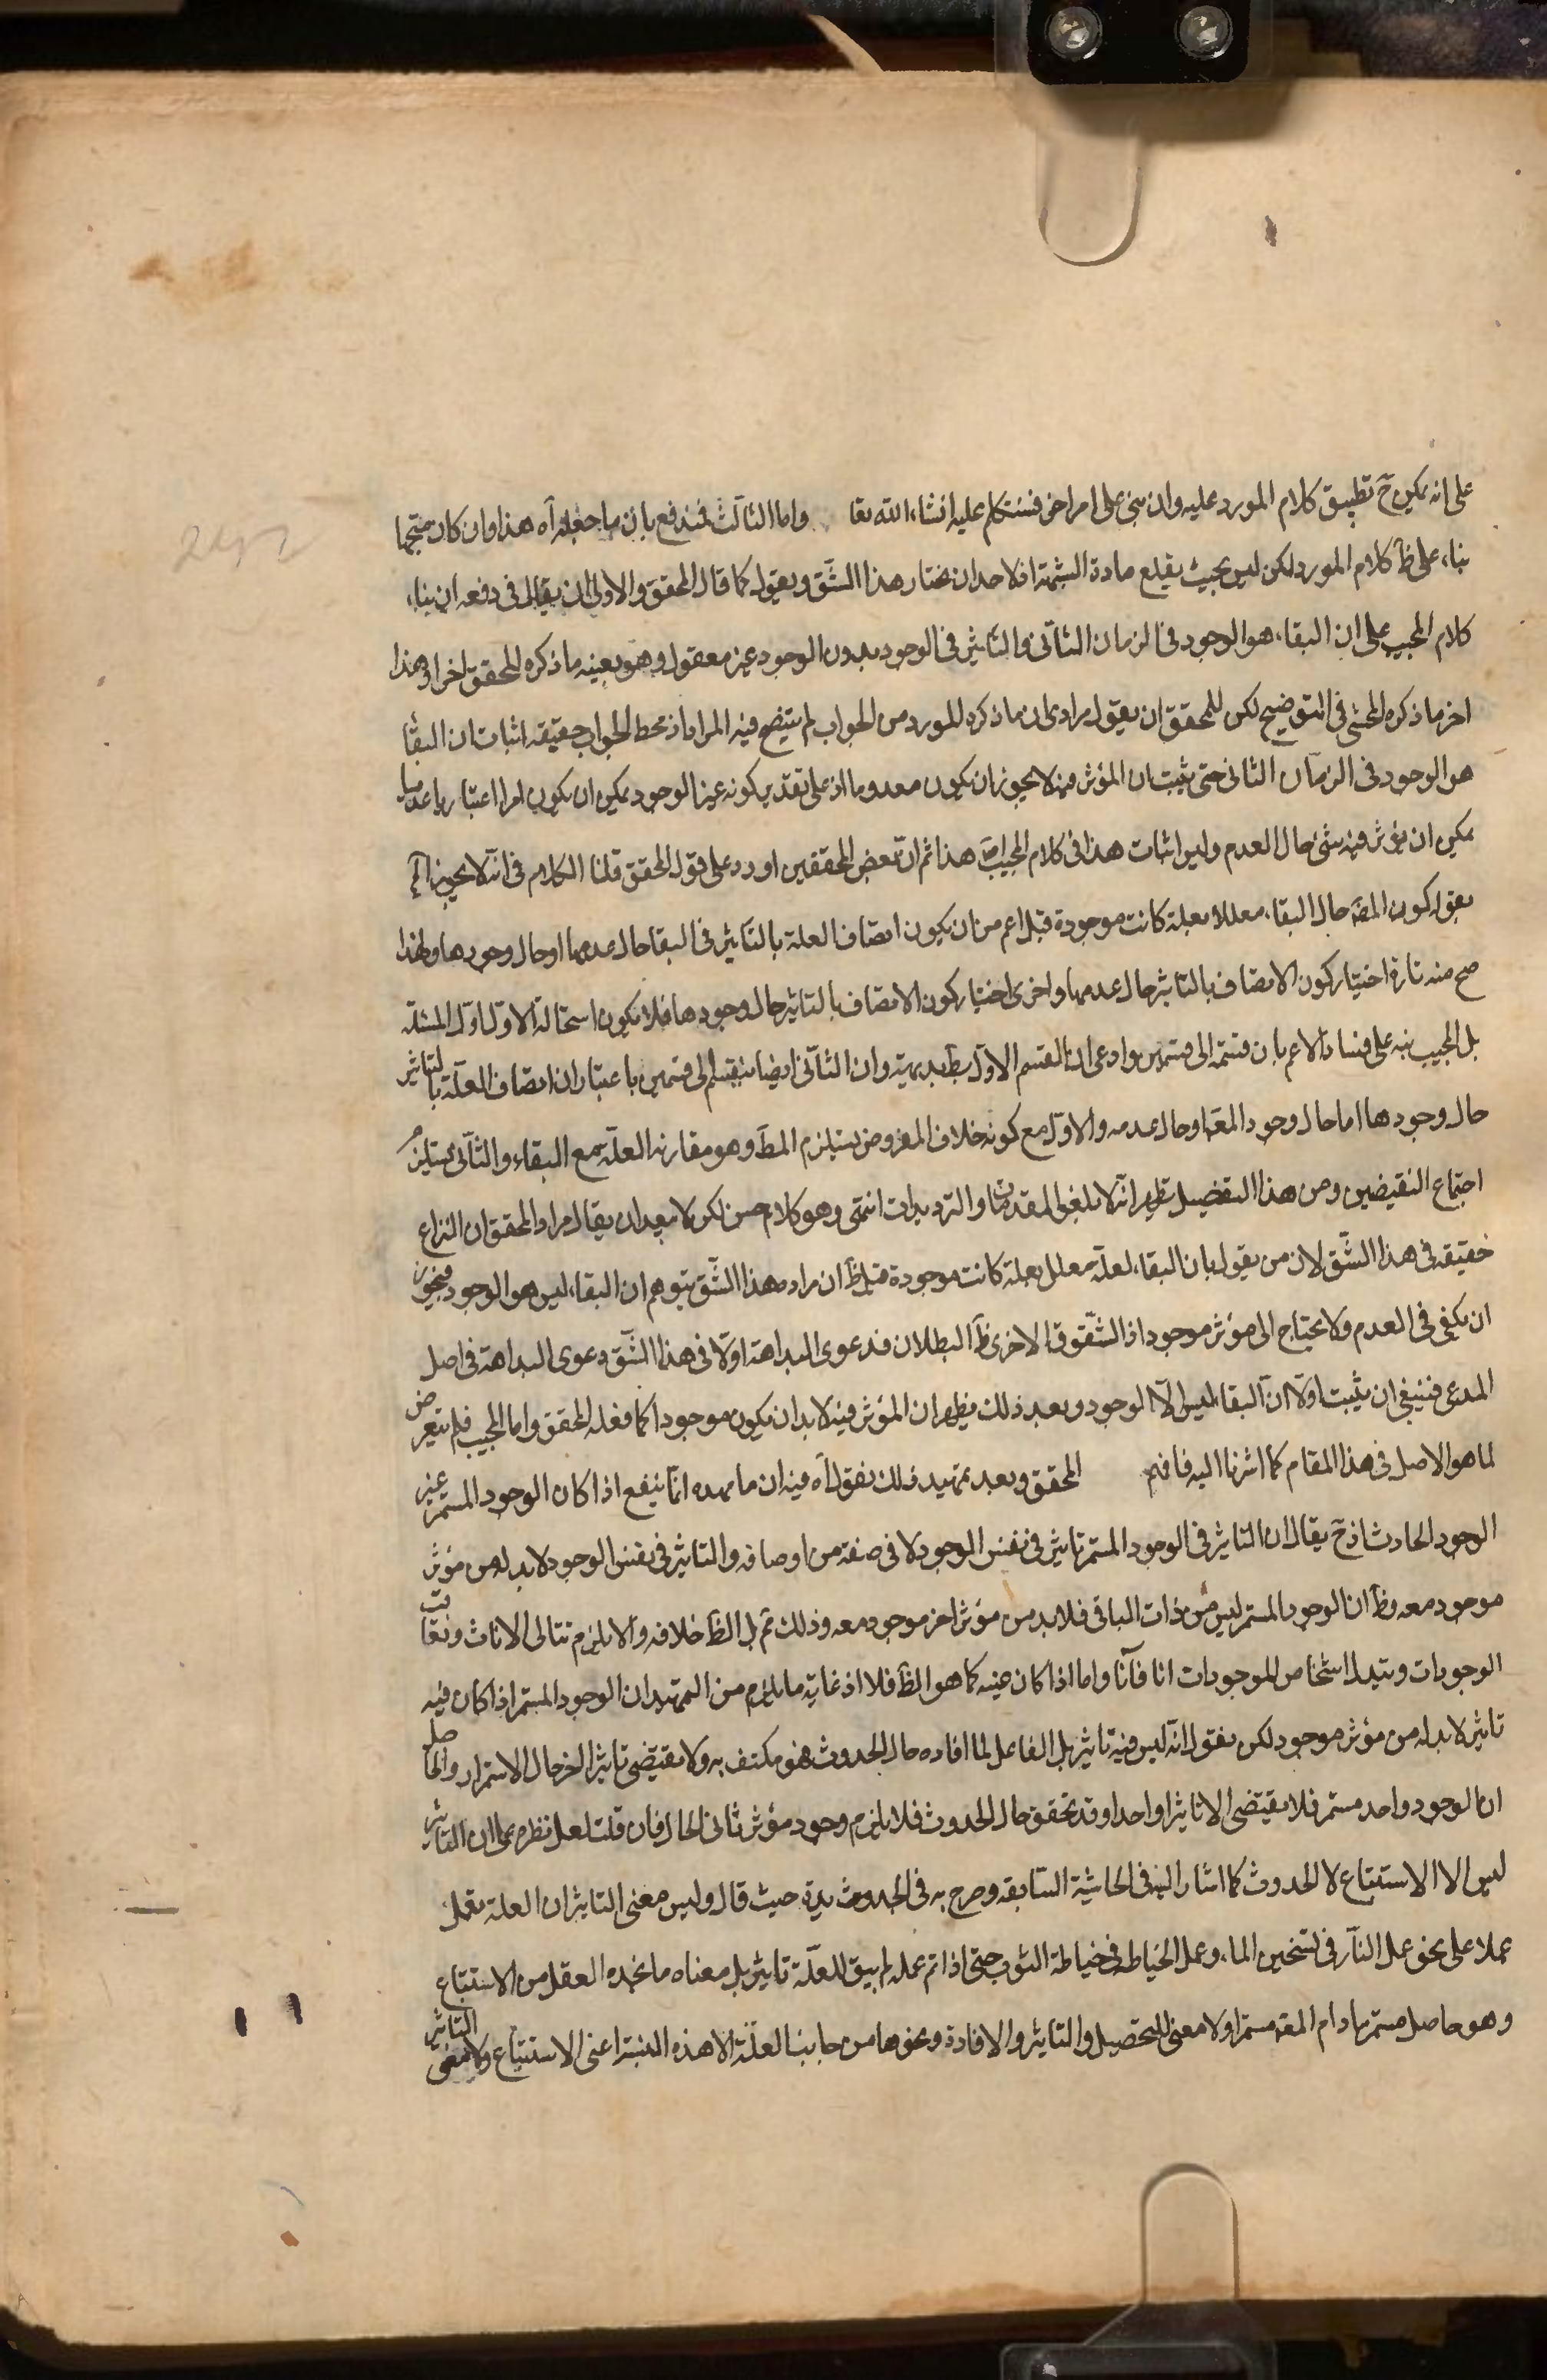 على انه يمكن ح تطبيق كلام المورد عليه وان بنى على امر اخر فسنتكلم عليه انشاء الله تعا واما الثالث فيندفع بان ما جعله آه هذا وان كان متجها
بناء على ظ كلام المورد لكن ليس بحيث يقلع مادة الشبهة اذ لاحد ان يختار هذا الشق ويقول كما قال المحقق والاولى ان يقال فى دفعه ان بناء
كلام المجيب على ان البقاء هو الوجود فى الزمان الثانى والتاثير فى الوجود بدون الوجود غير معقول وهو بعينه ما ذكره المحقق اخرا وهذا
اخر ما ذكره المحشى فى التوضيح لكن للمحقق ان يقول مرادى ان ما ذكره المورد من الجواب لم يتضح فيه المرام اذ محط الجواب حقيقة اثبات ان البقا
هو الوجود فى الزمان الثانى حتى يثبت ان المؤثر فيه لا يجوز ان يكون معدوما اذ على تقدير كونه غير الوجود يمكن ان يكون امرا اعتباريا عدميا
يمكن ان يؤثر فيه شئ حال العدم وليس اثبات هذا فى كلام المجيب اص هذا ثم ان بعض المحققين اورد على قول المحقق قلنا الكلام فى انه لا يجوز آه
بقوله كون المقه حال البقاء معللا بعلة كانت موجودة قبل اعم من ان يكون اتصاف العلة بالتاثير فى البقا حال عدمها او حال وجودها ولهذا
صح منه تارة اختيار كون الاتصاف بالتاثير حال عدمها واخرى اختيار كون الاتصاف بالتاثير حال وجودها فلا يكون استحالة الاول اول المسئلة
بل المجيب نبه على فساد الاعم بان قسمه الى قسمين وادعى ان القسم الاول بط بديهية وان الثانى ايضا ينقسم الى قسمين باعتبار ان اتصاف العلة بالتاثير
حال وجودها اما حال وجود المعه او حال عدمه والاول مع كونه خلاف المفروض يستلزم المط وهو مقارنه العلة مع البقاء والثانى يستلزم
اجتماع النقيضين ومن هذا التفصيل يظهر انه لا يلغو المقدمات والترديدات انتهى وهو كلام حسن لكن لا يبعد ان يقال مراد المحقق ان النزاع
حقيقه فى هذا الشق لان من يقول بان البقاء لعله معلل بعلة كانت موجودة قبل ظ ان مراده هذا الشق بتوهم ان البقاء ليس هو الوجود فيجوز
ان يكفى فى العدم ولا يحتاج الى مؤثر موجود اذ الشقوق الاخرى ظ البطلان فدعوى البداهة اولا فى هذا الشق دعوى البداهة فى اصل
المدعى فينبغى ان يثبت اولا ان البقاء ليس الا الوجود وبعد ذلك يظهر ان المؤثر فيه لا بد ان يكون موجودا كما فعله المحقق واما المجيب فلم يتعرض
لما هو الاصل فى هذا المقام كما اشرنا اليه فافهم المحقق وبعد تمهيد ذلك نقول آه فيه ان ما مهده انما ينفع اذا كان الوجود المستمر غير
الوجود الحادث اذ ح يقال ان التاثير فى الوجود المستمر تاثير فى نفس الوجود لا فى صفة من اوصافه والتاثير فى نفس الوجود لا بد له من مؤثر
موجود معه وظ ان الوجود المستمر ليس من ذات الباقى فلا بد من مؤثر اخر موجود معه وذلك ثم بل الظ خلافه والا يلزم تتالى الانات وتعاقب
الوجودات وتبدل اشخاص الموجودات انا فآنا واما اذا كان عينه كما هو الظ فلا اذ غاية ما يلزم من التمهيد ان الوجود المستمر اذا كان فيه
تاثير لا بد له من مؤثر موجود لكن نقول انه ليس فيه تاثير بل الفاعل لما افاده حال الحدوث فهو مكتف به ولا يقتضى تاثيرا اخر حال الاستمرار والحاصل
ان الوجود واحد مستمر فلا يقتضى الا تاثيرا واحدا وقد تحقق حال الحدوث فلا يلزم وجود مؤثر ثانى الحال فان قلت لعل نظره على ان التاثير
ليس الا الاستتباع لا الحدوث كما اشار اليه فى الحاشية السابقه وصرح به فى الجديدة حيث قال وليس معنى التاثير ان العلة تعمل
عملا على نحو عمل النار فى تسخين الماء وعمل الخياط فى خياطة الثوب حتى اذا تم عمله لم يبق للعلة تاثير بل معناه ما يجده العقل من الاستتباع
وهو حاصل مستمر مادام المعه مستمرا ولا معنى للتحصيل والتاثير والافادة ونحوها من جانب العلة الا هذه النسبة اعنى الاستتباع ولا معنى التاثير